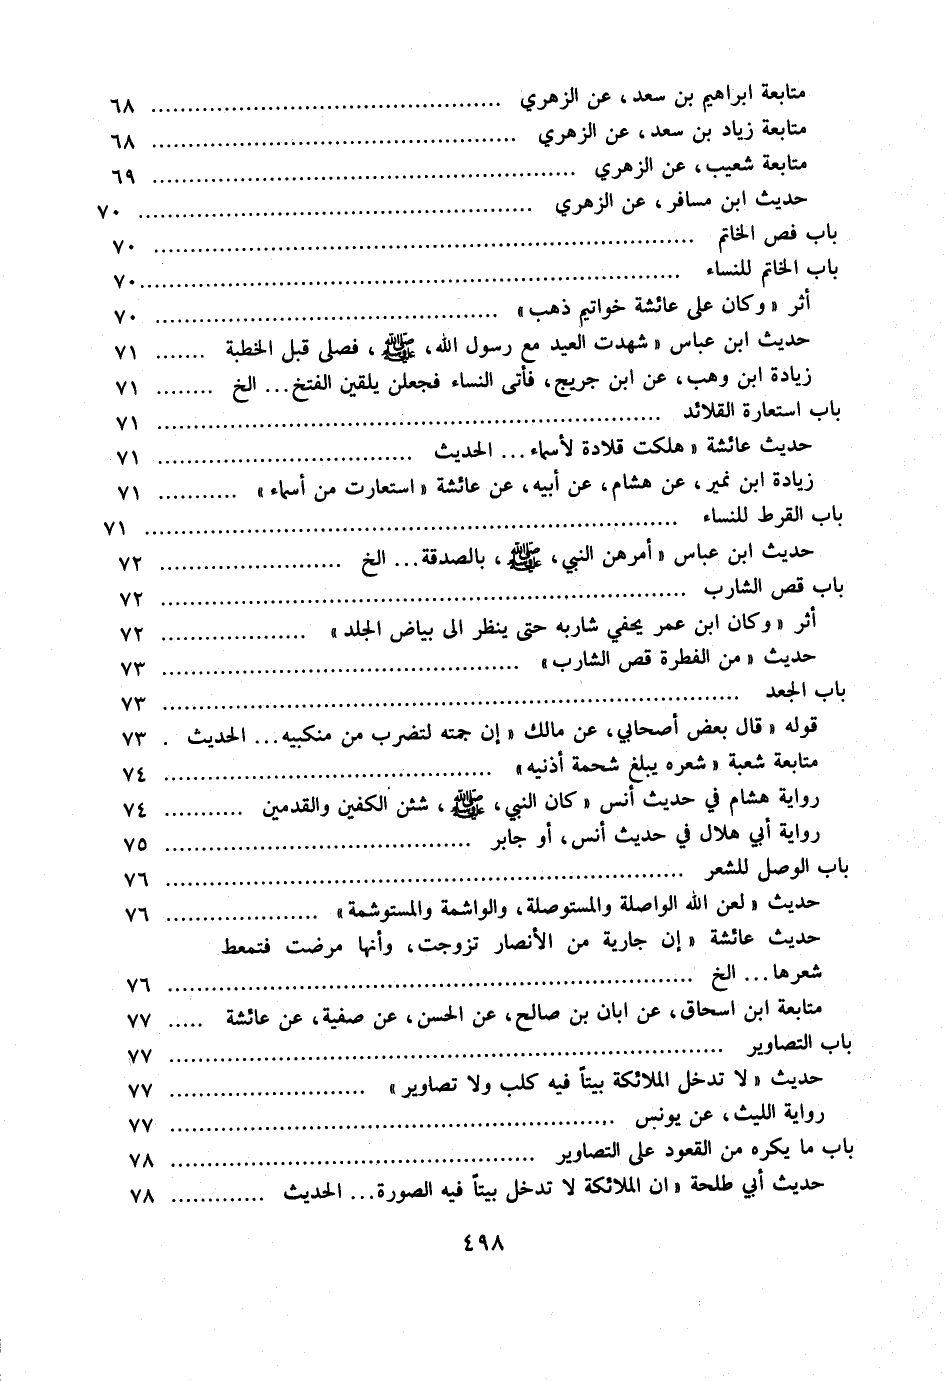 متابعة ابراهيم بن سعد، عن الزهري ................ ٦٨
متابعة زياد بن سعد، عن الزهري ................ ٦٨
متابعة شعيب، عن الزهري ................ ٦٩
حديث ابن مسافر، عن الزهري ................ ٧٠
باب فص الخاتم ................ ٧٠
باب الخاتم للنساء ................ ٧٠
أثر « وكان على عائشة خواتيم ذهب» ................ ٧٠
حديث ابن عباس « شهدت العيد مع رسول الله، ﷺ، فصلى قبل الخطبة ....... ٧١
زيادة ابن وهب، عن ابن جريج، فأتى النساء فجعلن يلقين الفتخ... الخ ........ ٧١
باب استعارة القلائد ................ ٧١
حديث عائشة « هلكت قلادة لأسماء ... الحديث ................ ٧١
زيادة ابن نمير، عن هشام، عن أبيه، عن عائشة « استعارت من أسماء» ........... ٧١
باب القرط للنساء ................ ٧١
حديث ابن عباس « أمرهن النبي، ﷺ، بالصدقة... الخ ................ ٧٢
باب قص الشارب ................ ٧٢
أثر « وكان ابن عمر يحفي شاربه حتى ينظر الى بياض الجلد» ................ ٧٢
حديث « من الفطرة قص الشارب» ................ ٧٣
باب الجعد ................ ٧٣
قوله « قال بعض أصحابي، عن مالك « إن جمته لتضرب من منكبيه... الحديث . ٧٣
متابعة شعبة « شعره يبلغ شحمة أذنيه» ................ ٧٤
رواية هشام في حديث أنس « كان النبي، ﷺ، شثن الكفين والقدمين ........... ٧٤
رواية أبي هلال في حديث أنس، أو جابر ................ ٧٥
باب الوصل للشعر ................ ٧٦
حديث « لعن الله الواصلة والمستوصلة، والواشمة والمستوشمة» ................ ٧٦
حديث عائشة « إن جارية من الأنصار تزوجت، وأنها مرضت فتمعط
شعرها... الخ ................ ٧٦
متابعة ابن اسحاق، عن ابان بن صالح، عن الحسن، عن صفية، عن عائشة ..... ٧٧
باب التصاوير ................ ٧٧
حديث « لا تدخل الملائكة بيتاً فيه كلب ولا تصاوير» ................ ٧٧
رواية الليث، عن يونس ................ ٧٧
باب ما يكره من القعود على التصاوير ................ ٧٨
حديث أبي طلحة « ان الملائكة لا تدخل بيتاً فيه الصورة... الحديث ............. ٧٨
٤٩٨